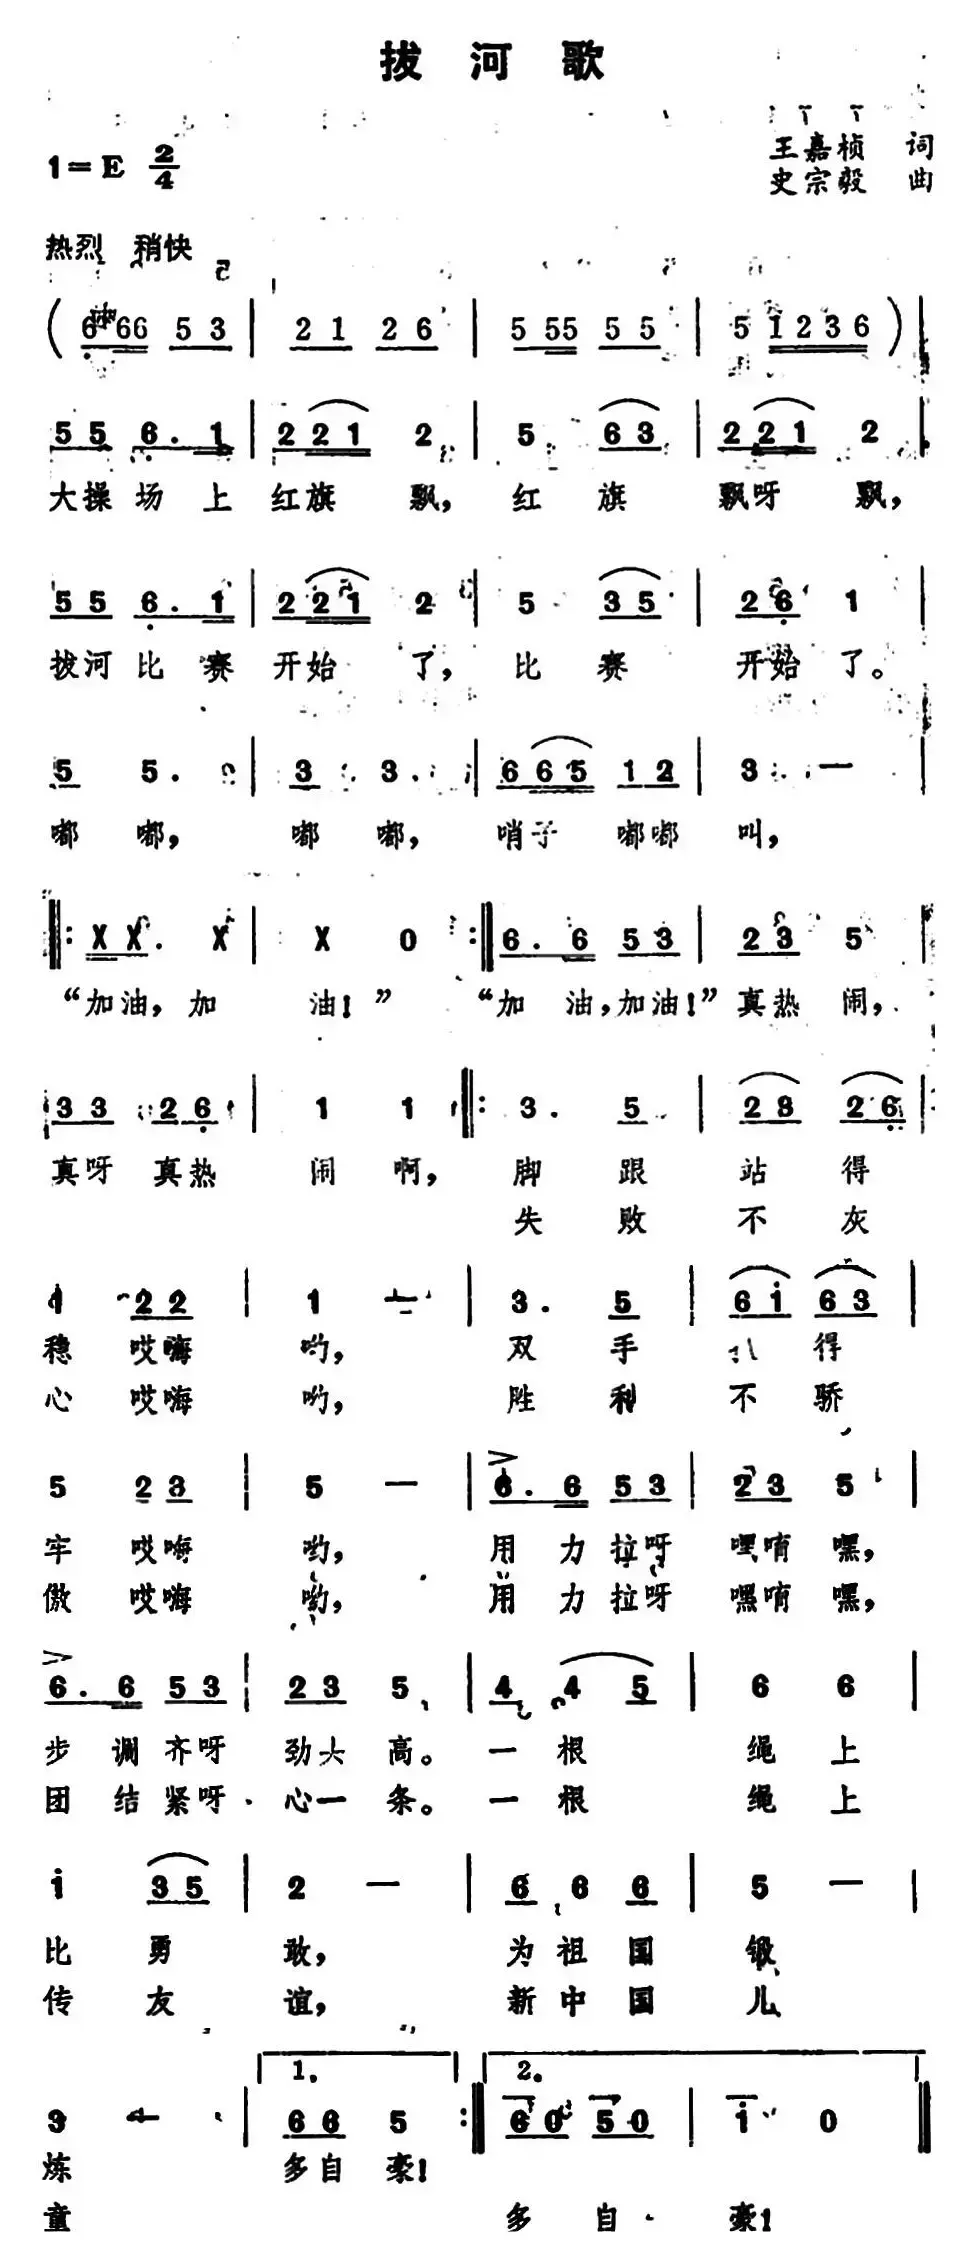 拔河歌
王嘉桢 词
1=E 2/4
史宗毅 曲
热烈 稍快
(6 66 5 3 | 2 1 2 6 | 5 55 5 5 | 5 1236) |
5 5 6. 1 | 2 2 1 2 | 5 6 3 | 2 2 1 2 |
大操 场 上 红旗 飘, 红 旗 飘呀 飘,
5 5 6. 1 | 2 2 1 2 | 5 3 5 | 2 6 1 |
拔河 比 赛 开始 了, 比 赛 开始 了。
5 5. | 3 3. | 6 6 5 1 2 | 3 — |
嘟 嘟, 嘟 嘟, 哨子 嘟嘟 叫,
‖: X X. X | X 0 :‖ 6. 6 5 3 | 2 3 5 |
“加油, 加 油!” “加 油,加油!”真热 闹,
3 3 2 6 | 1 1 ‖: 3. 5 | 2 3 2 6 |
真呀 真热 闹 啊, 脚 跟 站 得
失 败 不 灰
1 2 2 | 1 — | 3. 5 | 6 i 6 3 |
稳 哎嗨 哟, 双 手 得
心 哎嗨 哟, 胜 利 不 骄
5 2 3 | 5 — | 6. 6 5 3 | 2 3 5 |
牢 哎嗨 哟, 用 力 拉呀 嘿唷 嘿,
傲 哎嗨 哟, 用 力 拉呀 嘿唷 嘿,
6. 6 5 3 | 2 3 5 | 4 4 5 | 6 6 |
步 调 齐呀 劲大 高。 一 根 绳 上
团 结 紧呀 心一 条。 一 根 绳 上
i 3 5 | 2 — | 6 6 6 | 5 — |
比 勇 敢, 为 祖 国 锻
传 友 谊, 新 中 国 儿
1. 2.
3 — | 6 6 5 :‖ 6 0 5 0 | i 0 ‖
炼 多自 豪!
童 多 自 豪!